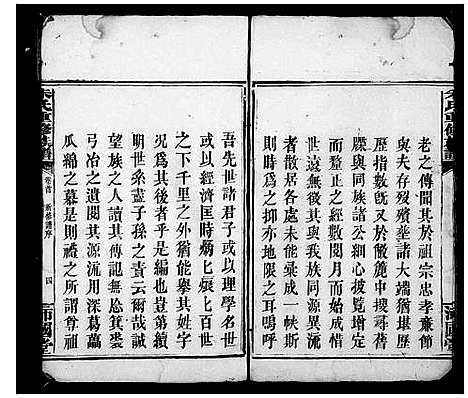 老之傳聞其於祖宗忠孝廉節
與夫存歿殯葬諸大端猶堪歷
歷指數旣又於敝簏中搜尋舊
牒與同族諸公細心披覽增定
而釐正之經數閱月而始成惜
世遠無徵其與我族同源異流
者散居各處未能彙成一帙斯
則時爲之抑亦地限之耳嗚呼
吾先世諸君子或以理學名世
或以經濟匡時炳匕娘匕百世
之下千里之外猶能舉其姓字
況爲其後者乎是編也豈第續
明世系葢子孫之責云爾哉誠
望族之人讀其傳記無忘箕裘
弓冶之遺閱其源流用深葛藟
瓜綿之慕是則禮之所謂尊祖
氏重修族譜
卷首
新修譜序
四
沛國堂